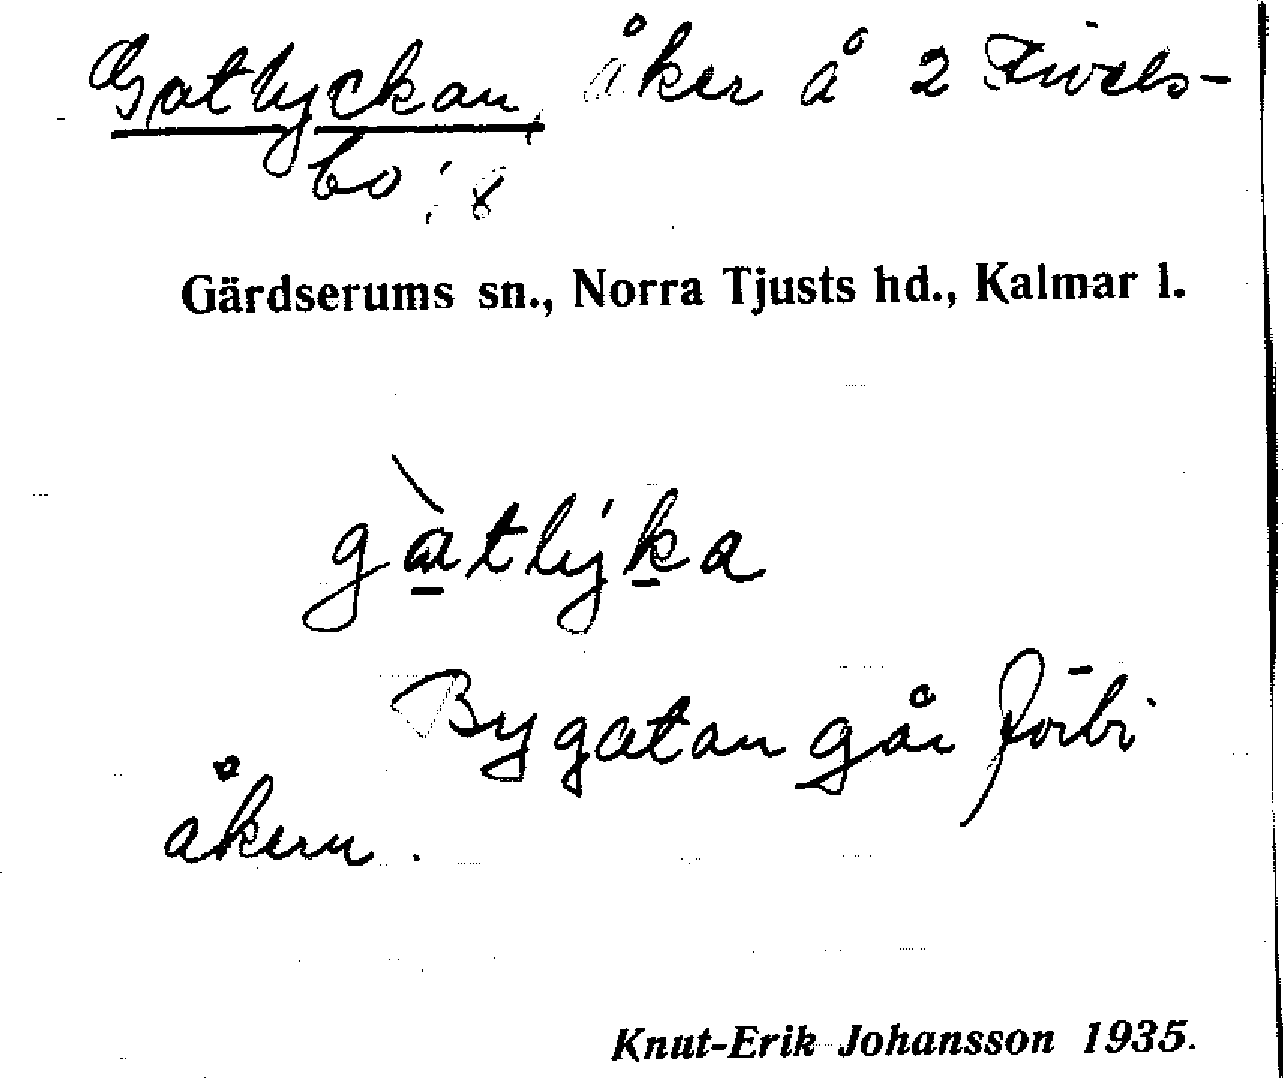 Gatlyckan, åker å 2 Fivels-
bo 1:8
Gärdserums sn., Norra Tjusts hd., Kalmar l.
gàtlýka
Bygatan går förbi
åkern.
Knut-Erik Johansson 1935.